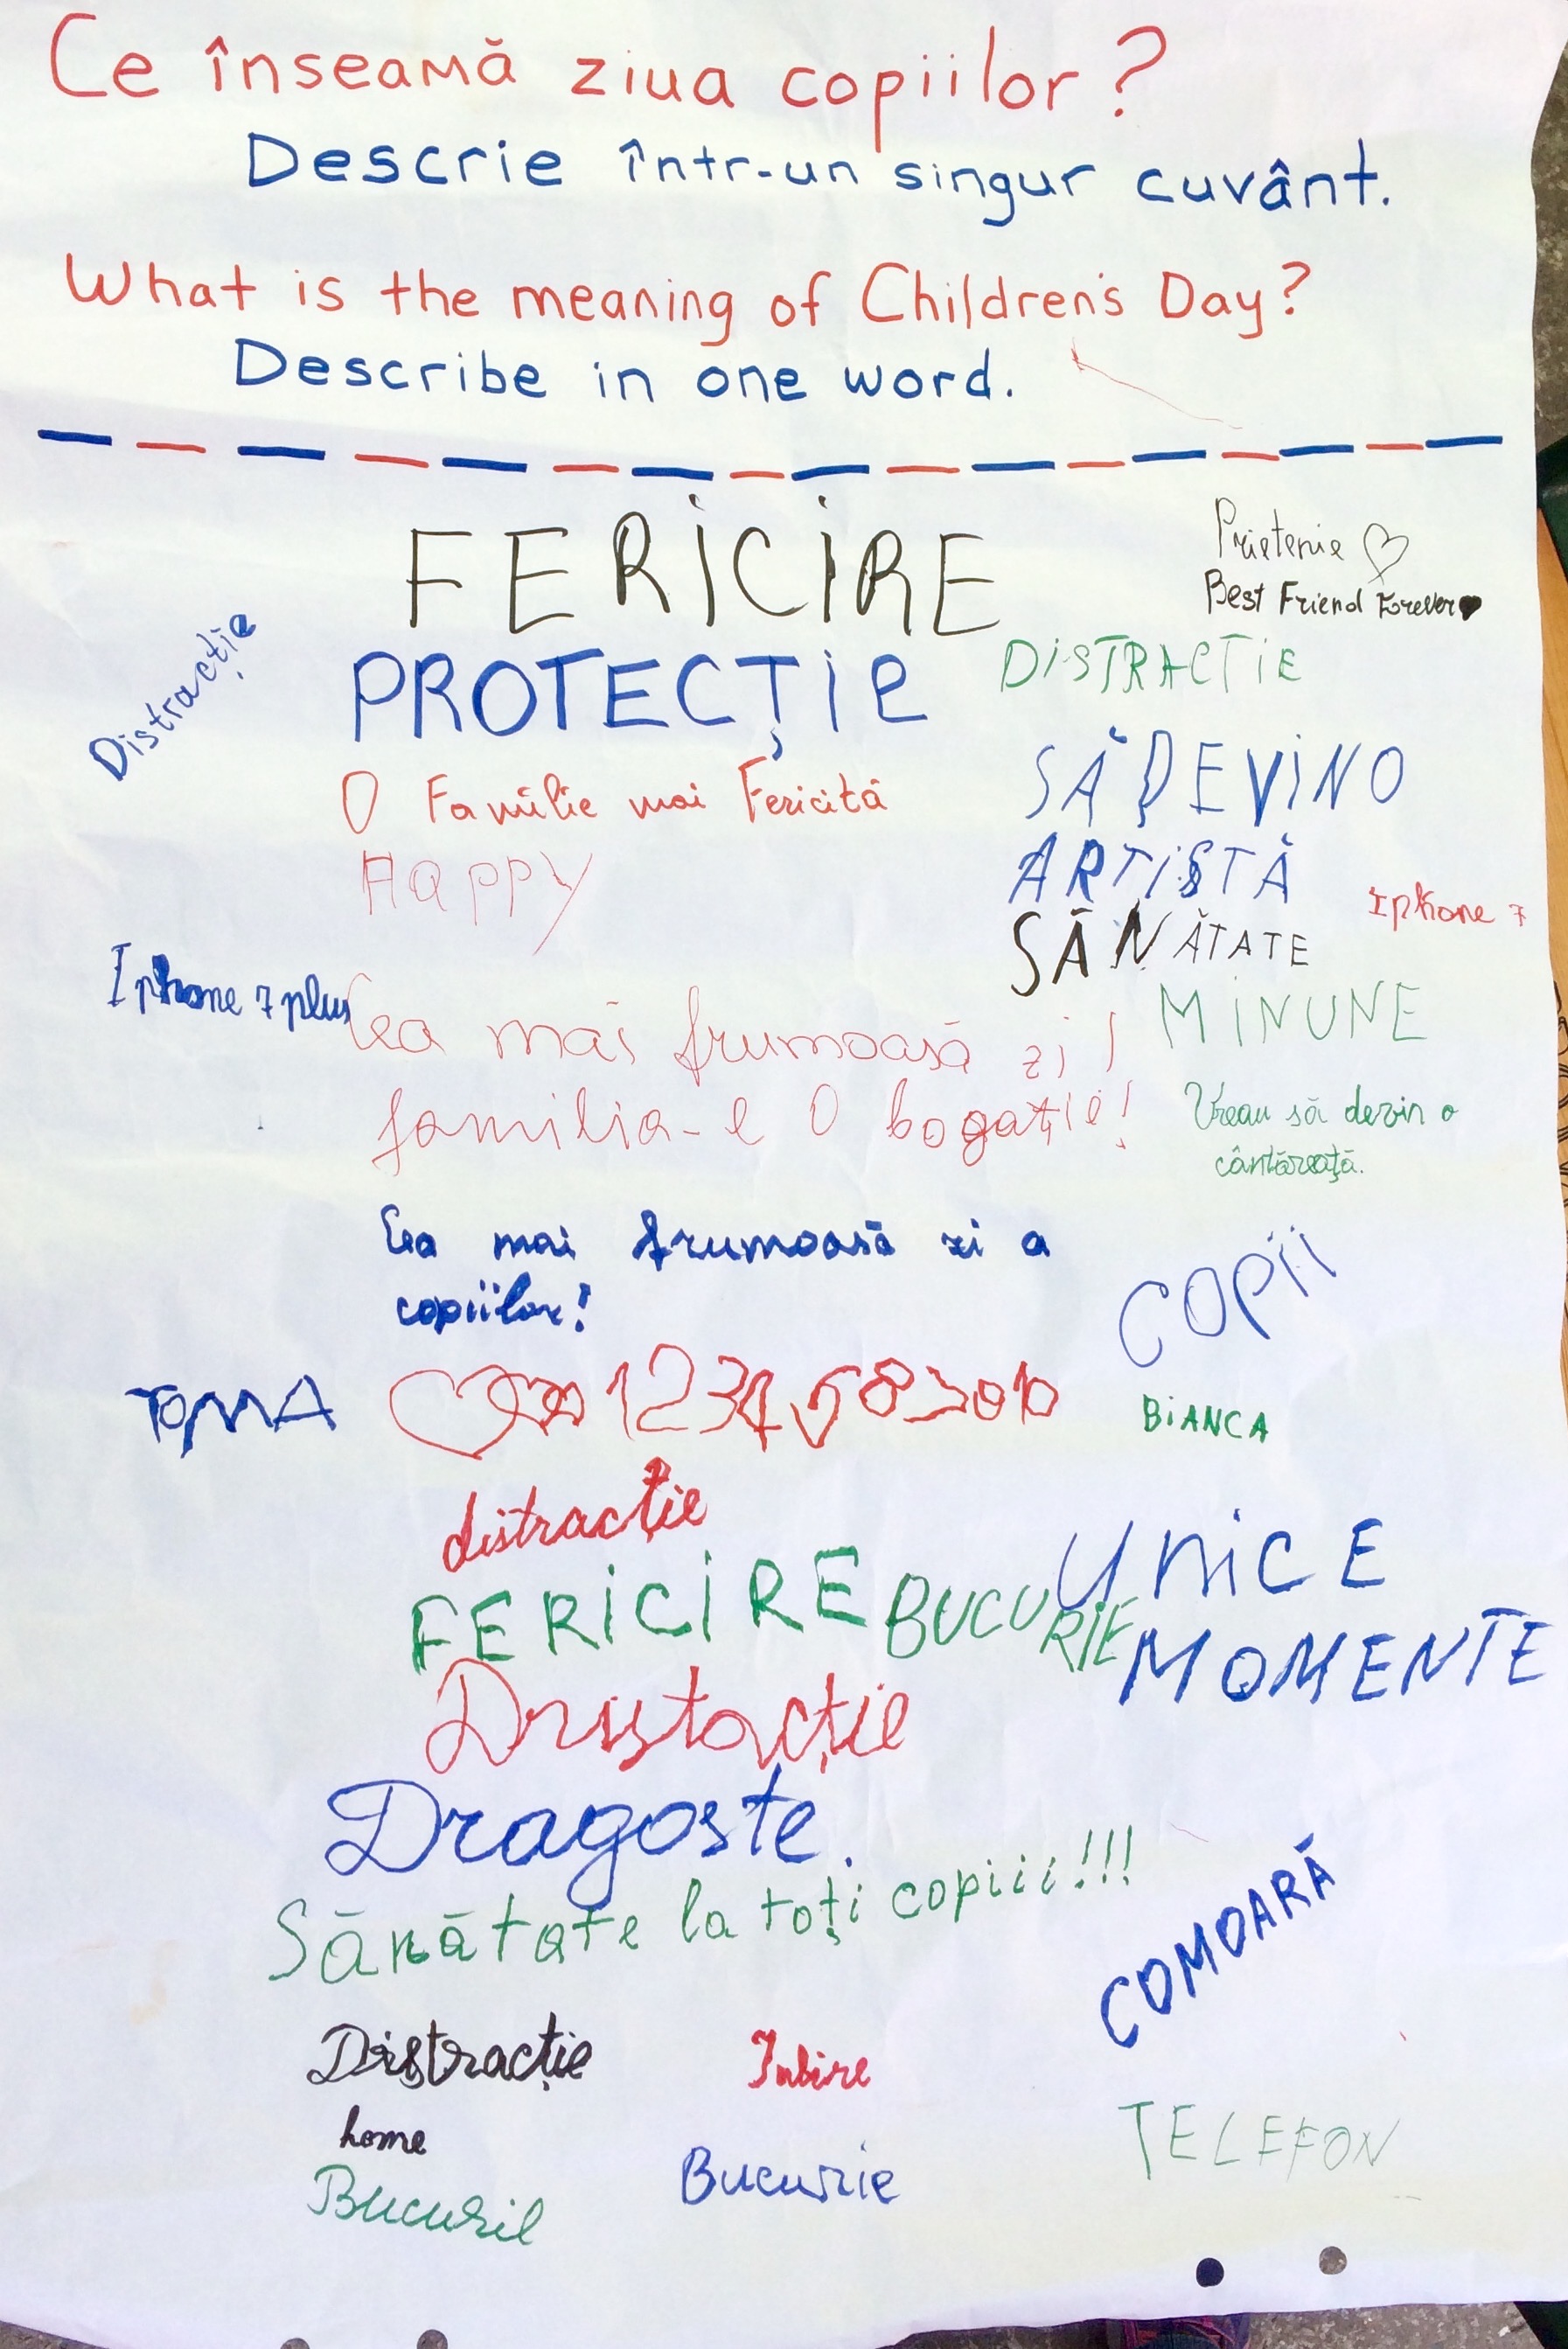 Ce înseamă ziua copiilor?
Descrie într-un singur cuvânt.
What is the meaning of Children's Day?
Describe in one word.
FERICIRE
Prietenie
Best Friend Forever
Distracție
PROTECȚIE
DISTRACTIE
O Familie mai Fericită
SĂ DEVINO
ARTISTĂ
HAPPY
Iphone 7
SĂNĂTATE
Iphone 7 plus
Cea mai frumoasă zi!
MINUNE
familia-e O bogăție!
Vreau să devin o
cântăreață.
Cea mai frumoasă zi a
copiilor!
COPii
TOMA
BiANCA
distracție
UNiCE
FERICIRE
BUCURIE
MOMENTE
Dragoste.
Sănătate la toți copiii!!!
COMOARĂ
Distracție
Iubire
home
TELEFON
Bucurie